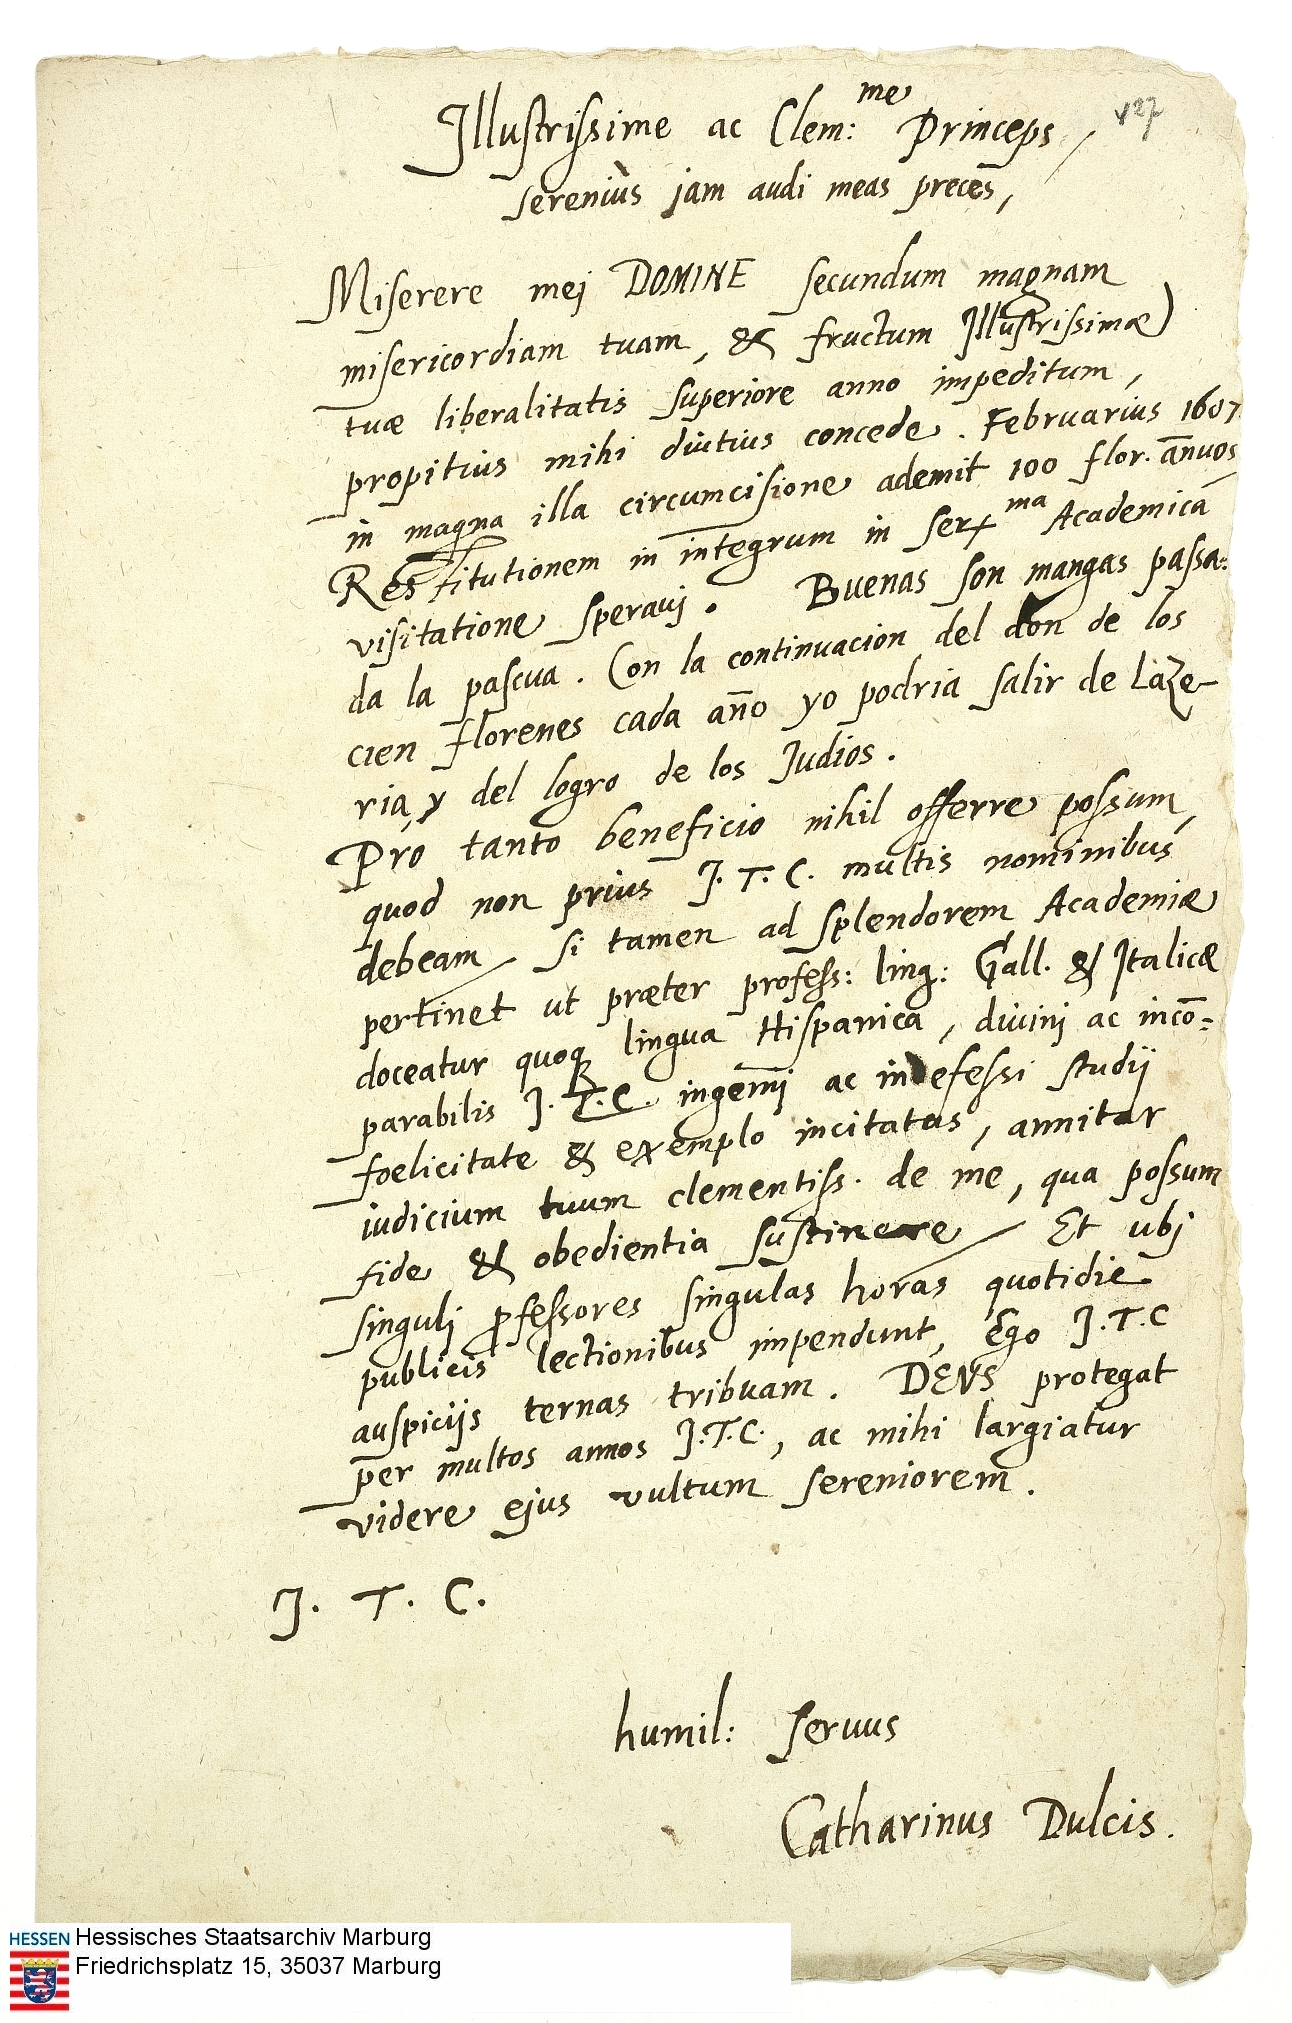 Illustrissime ac Clem:me Princeps,
serenius jam audi meas preces,
Miserere mej DOMINE secundum magnam
misericordiam tuam, & fructum Illustrissimæ
tuæ liberalitatis superiore anno impeditum,
propitius mihi diutius concede. Februarius 1607
in magna illa circumcisione ademit 100 flor. añuos
Restitutionem in integrum in ser.ma Academica
visitatione speravj. Buenas son mangas passa:
da la pascua. Con la continuacion del don de los
cien florenes cada año yo podria salir de Laze-
ria, y del logro de los Judios.
Pro tanto beneficio nihil offerre possum,
quod non prius J. T. C. multis nominibus
debeam / si tamen ad splendorem Academiæ
pertinet ut præter profess: ling: Gall. & Italicæ
doceatur quoq lingua Hispanica, divinj ac incō=
parabilis J. T. C. ingenij ac indefessi studij
foelicitate & exemplo incitatus, annitar
iudicium tuum clementiss. de me, qua possum
fide & obedientia sustinere / Et ubj
singulj pfessores singulas horas quotidie
publicis lectionibus impendunt, Ego J.T.C
auspicijs ternas tribuam. DEUS protegat
per multos annos J.T.C., ac mihi largiatur
videre ejus vultum sereniorem.
J. T. C.
humil: servus
Catharinus Dulcis.
HESSEN Hessisches Staatsarchiv Marburg
Friedrichsplatz 15, 35037 Marburg